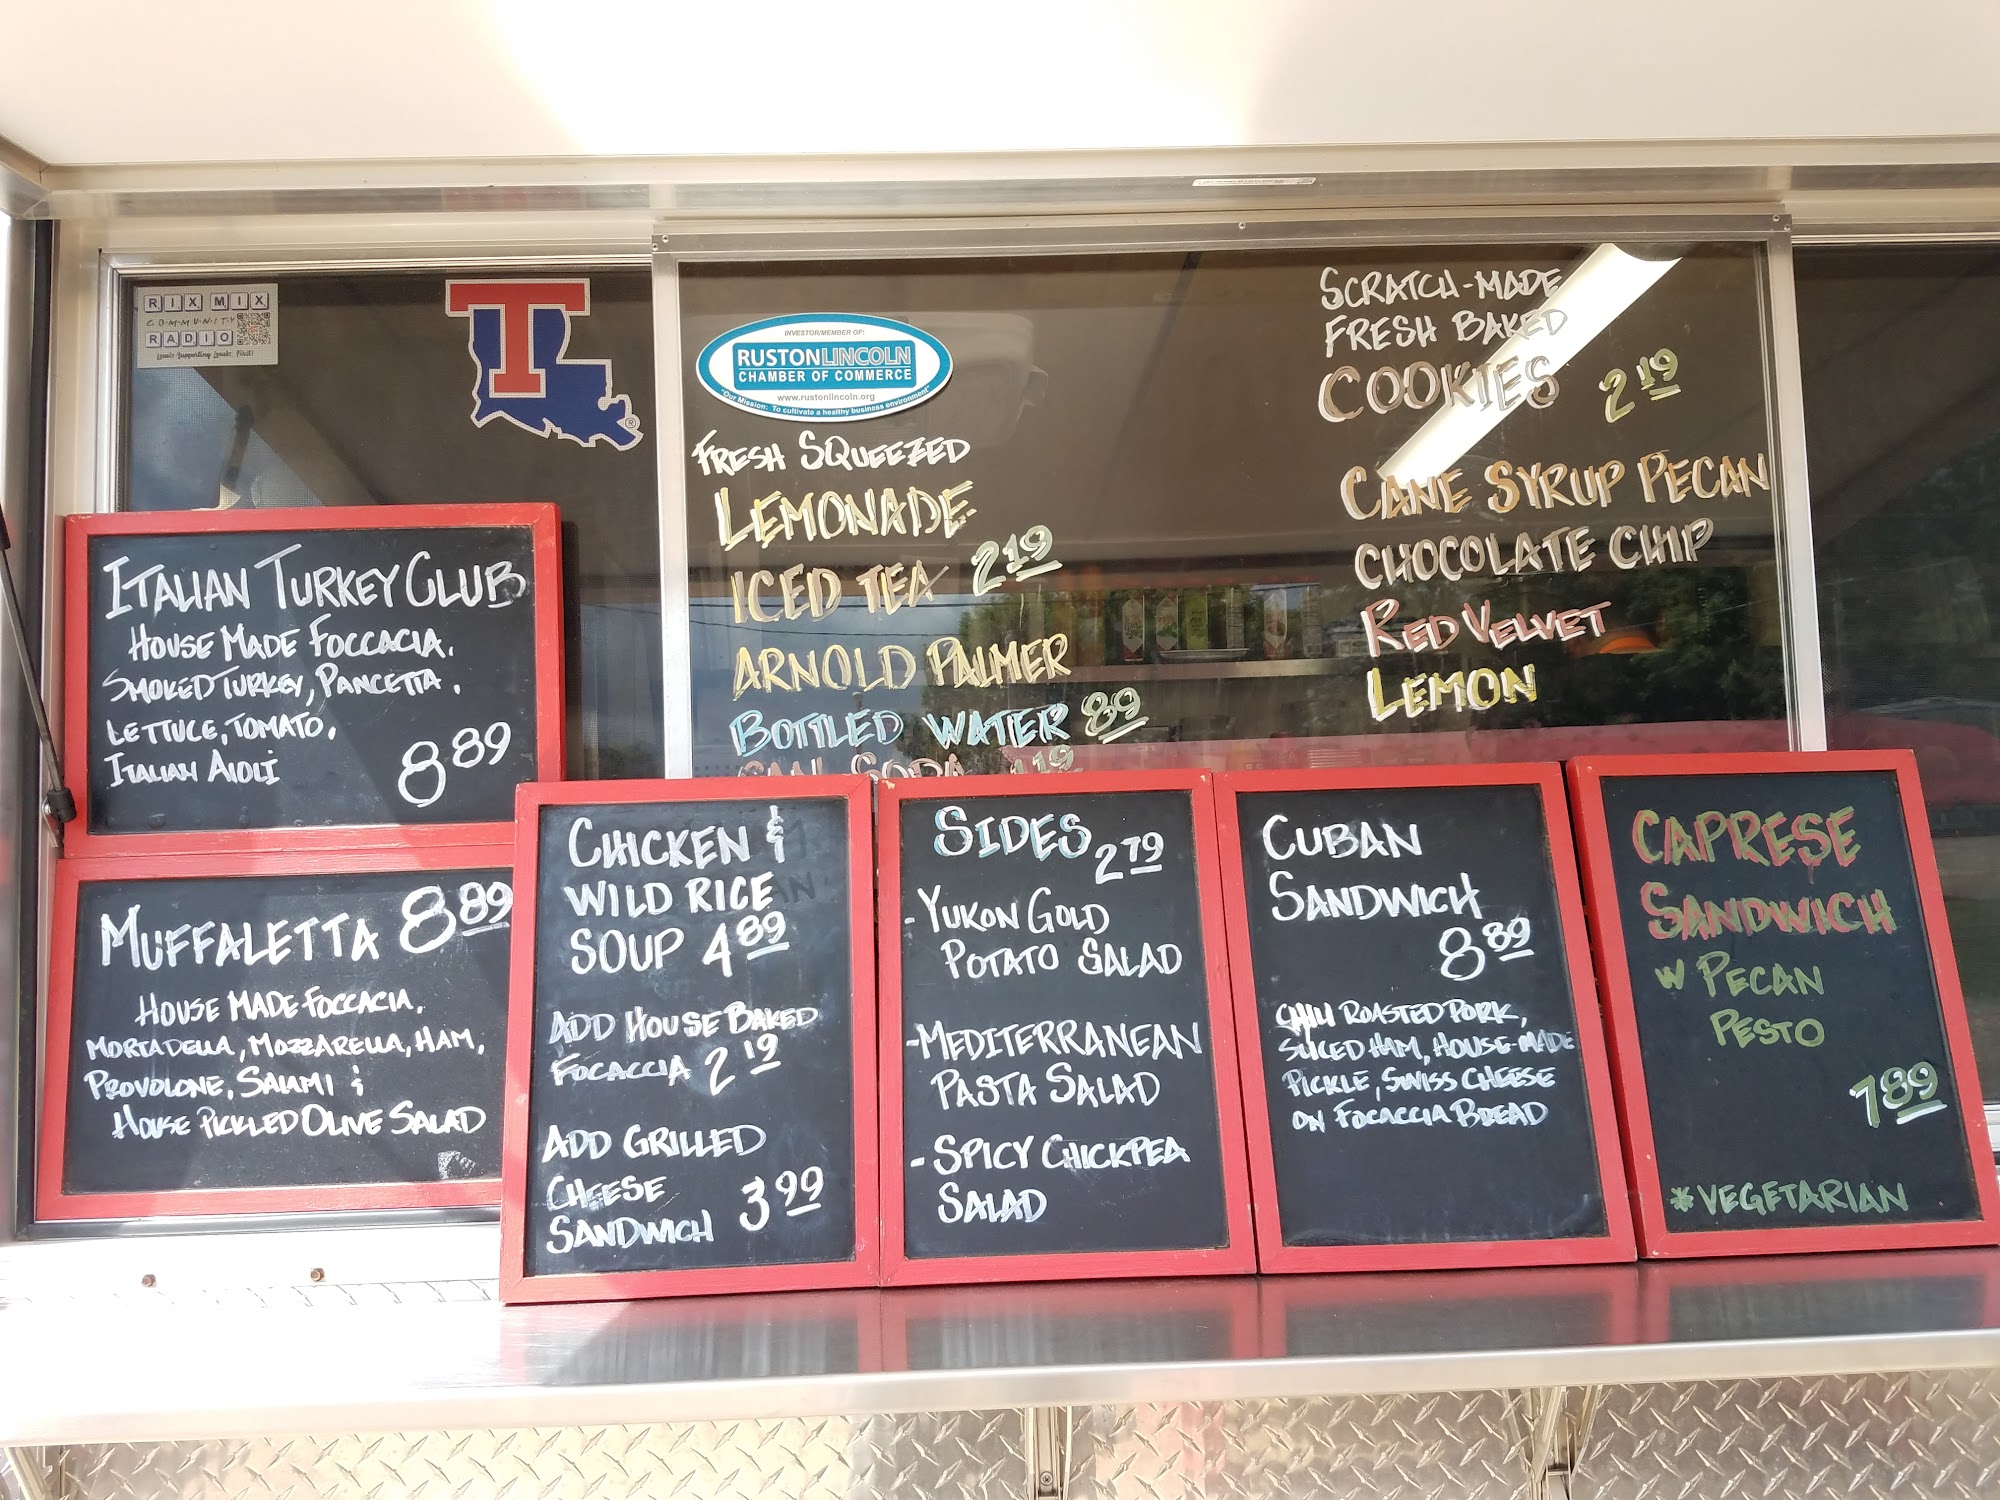 RIX MIX
COMMUNITY
RADIO
Locals Supporting Locals, First!
T
®
INVESTOR/MEMBER OF:
RUSTONLINCOLN
CHAMBER OF COMMERCE
www.rustonlincoln.org
"Our Mission: To cultivate a healthy business environment"
FRESH SQUEEZED
LEMONADE
ICED TEA 2.19
ARNOLD PALMER
BOTTLED WATER 89
CAN SODA 1.19
SCRATCH-MADE
FRESH BAKED
COOKIES 2.19
CANE SYRUP PECAN
CHOCOLATE CHIP
RED VELVET
LEMON
ITALIAN TURKEY CLUB
HOUSE MADE FOCCACIA.
SMOKED TURKEY, PANCETTA.
LETTUCE, TOMATO.
ITALIAN AIOLI 8 89
MUFFALETTA 8 89
HOUSE MADE FOCCACIA.
MORTADELLA, MOZZARELLA, HAM,
PROVOLONE, SALAMI &
HOUSE PICKLED OLIVE SALAD
CHICKEN &
WILD RICE
SOUP 4 89
ADD HOUSE BAKED
FOCACCIA 2 19
ADD GRILLED
CHEESE
SANDWICH 3 99
SIDES 2 79
-YUKON GOLD
POTATO SALAD
-MEDITERRANEAN
PASTA SALAD
-SPICY CHICKPEA
SALAD
CUBAN
SANDWICH
8 89
CHILI ROASTED PORK,
SLICED HAM, HOUSE-MADE
PICKLE, SWISS CHEESE
ON FOCACCIA BREAD
CAPRESE
SANDWICH
W PECAN
PESTO
7 89
*VEGETARIAN